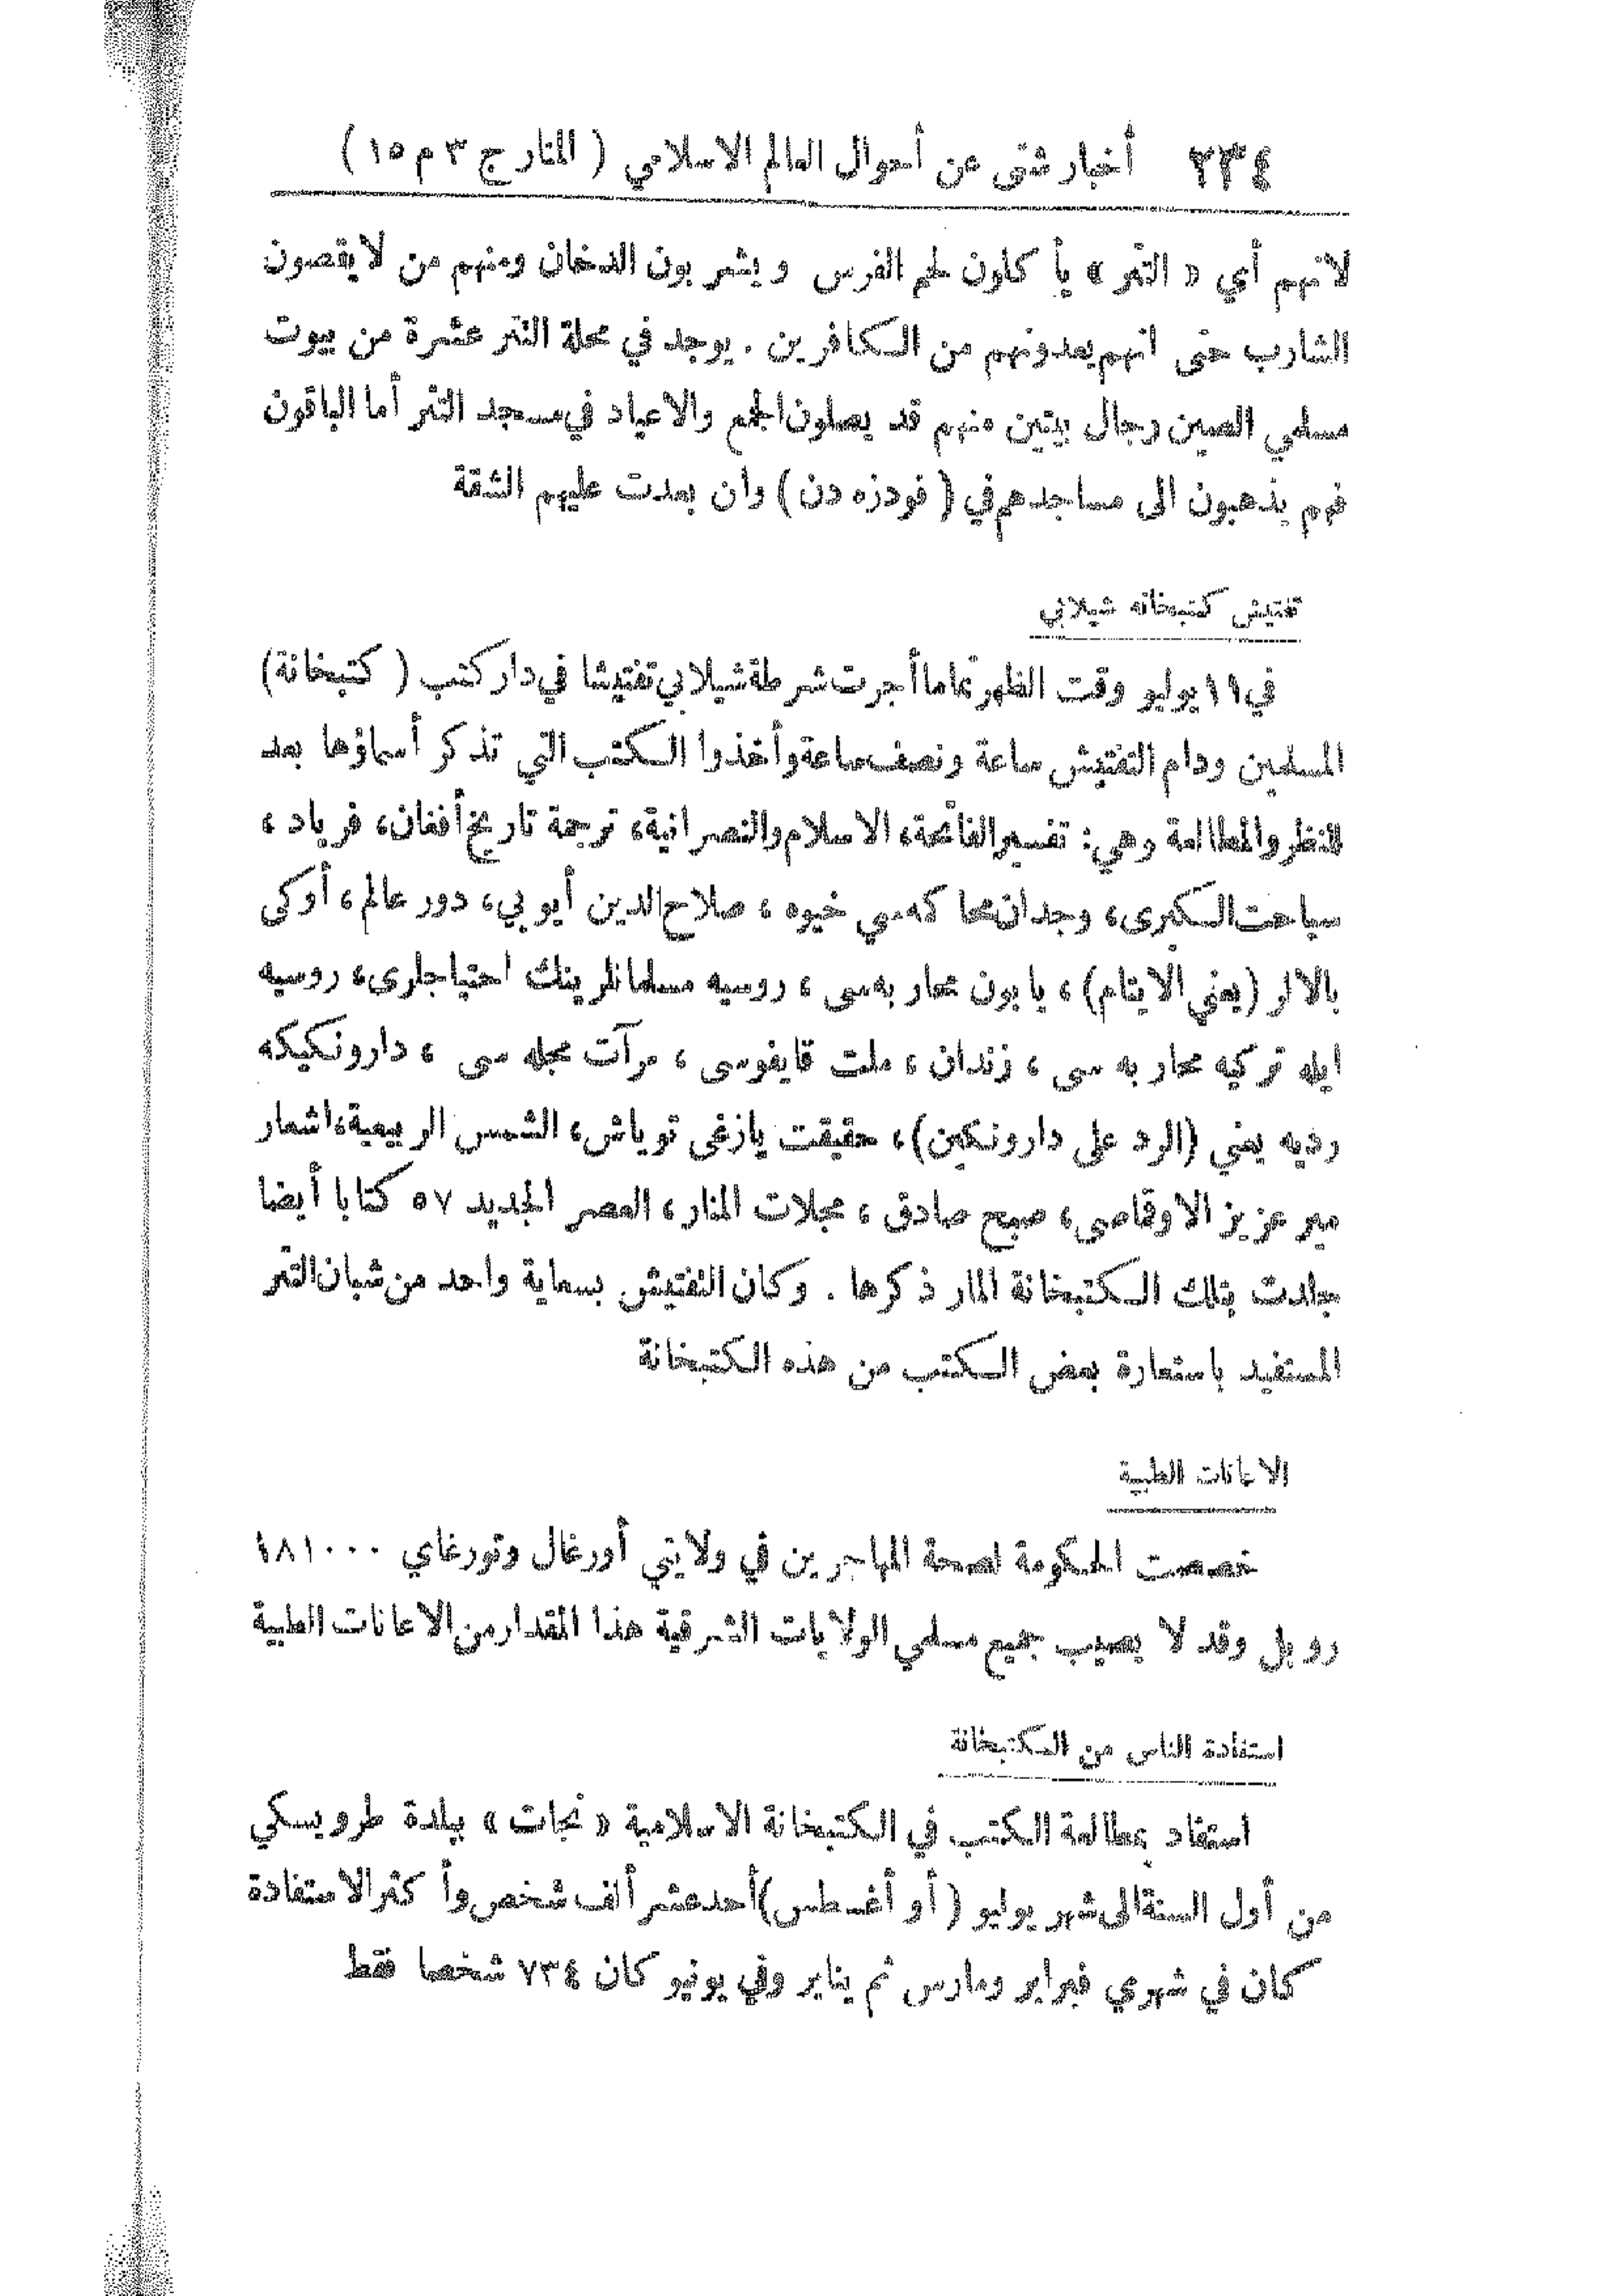 ٢٣٤ أخبار شتى عن أحوال العالم الاسلامي ( المنار ج ٣ م ١٥ )
لانهم أي « التتر » يأ كلون لحم الفرس ويشربون الدخان ومنهم من لا يقصون
الشارب حتى انهم يعدونهم من الكافرين . يوجد في محلة التتر عشرة من بيوت
مسلمي الصين رجال بيتين منهم قد يصلون الجمع والاعياد في مسجد التتر أما الباقون
فهم يذهبون الى مساجدهم في ( فودزه دن ) وان بعدت عليهم الشقة
تفتيش كتبخانه شيلابي
في ١٩ يوليو وقت الظهر تماما أجرت شرطة شيلابي تفتيشا في دار كتب ( كتبخانة )
المسلمين ودام التفتيش ساعة ونصف ساعة وأخذوا الكتب التي تذكر أسماؤها بعد
للنظر والمطالعة وهي : تفسير الفاتحة، الاسلام والنصرانية، ترجمة تاريخ أفغان، فرياد ،
سياحت الكبرى، وجدان محا كه سي خيوه ، صلاح الدين أيوبي، دور عالم ، أوكى
بالالر (يعني الايتام) ، يابون محاربه سى ، روسيه مسلمانلرينك احتياجلرى، روسيه
ايله تركيه محاربه سى ، زندان ، ملت قايغوسى ، مرآت مجله سى ، دارونكيكه
رديه يعني (الرد على دارونكين) ، حقيقت يازغى توياش، الشمس الربيعية، اشعار
مير عزيز الاوقاصى، صبح صادق ، مجلات المنار ، العصر الجديد ٥٧ كتابا أيضا
جلدت بتلك الكتبخانة المار ذكرها . وكان التفتيش بسعاية واحد من شبان التتر
المستفيد باستعارة بعض الكتب من هذه الكتبخانة
الاعانات الطبية
خصصت الحكومة لصحة المهاجرين في ولايتي أورغال وتورغاي ١٨١٠٠٠
روبل وقد لا يصيب جميع مسلمي الولايات الشرقية هذا المقدار من الاعانات الطبية
استفادة الناس من الكتبخانة
استفاد بمطالعة الكتب في الكتبخانة الاسلامية « نجات » ببلدة طرويسكي
من أول السنة الى شهر يوليو ( أو أغسطس) أحد عشر ألف شخص وأ كثر الاستفادة
كان في شهري فبراير ومارس ثم يناير وفي يونيو كان ٧٣٤ شخصا فقط